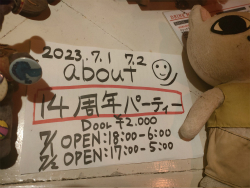 2023.7.1 7.2
about
14周年パーティー
Door ¥2.000
7/1 OPEN:18:00-6:00
7/2 OPEN:17:00-5:00